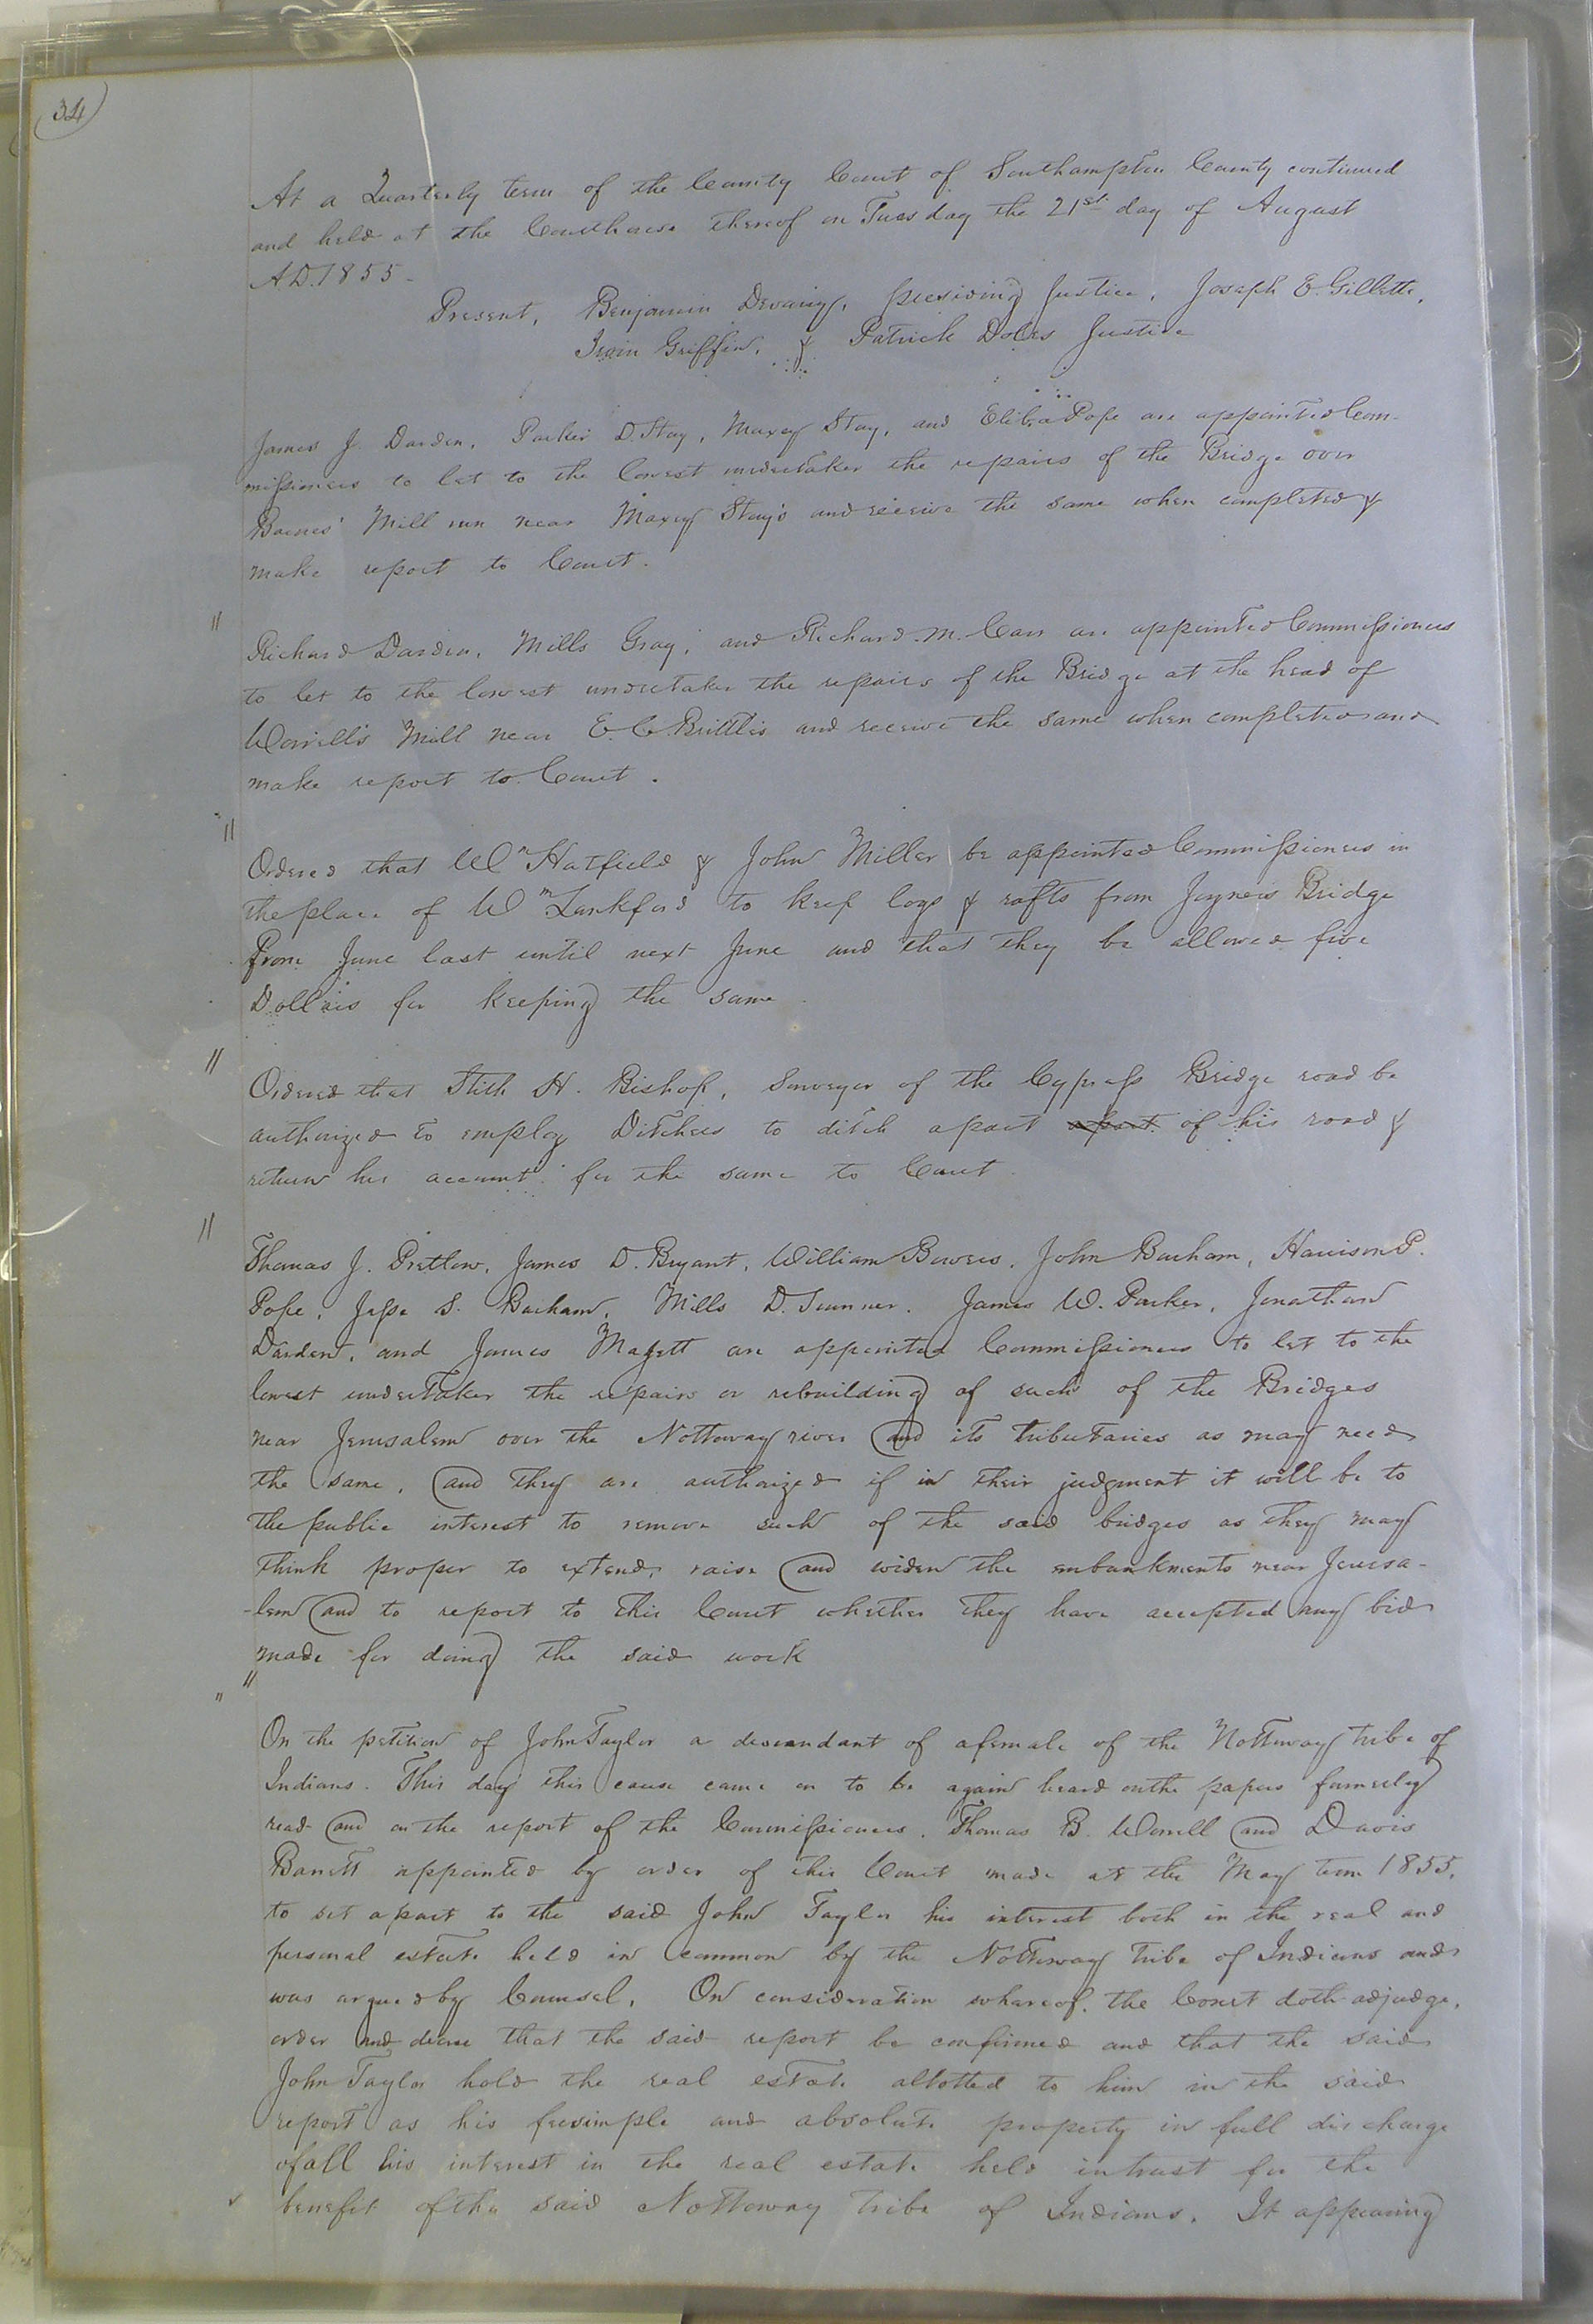 34
At a Quarterly term of the County Court of Southampton County continued
and held at the Courthouse thereof on Tuesday the 21st day of August
A.D. 1855 -
Present, Benjamin Devany, presiding Justice, Joseph E. Gillette,
Irwin Griffin, & Patrick Doles Justice
James J. Darden, Parker D. Stay, Maxey Stay, and Pope are appointed Com-
missioners to let to the lowest undertaker the repairs of the Bridge over
Barnes' Mill run near Maxey Stay's and receive the same when completed &
make report to Court.
"
Richard Darden, Mills Gray, and Richard M. Carr are appointed Commissioners
to let to the lowest undertaker the repairs of the Bridge at the head of
Worrell's Mill near E. C. Brittle's and receive the same when completed and
make report to Court.
"
Ordered that Wm Hatfield & John Miller be appointed Commissioners in
the place of Wm Lankford to keep logs & rafts from Joyners Bridge
from June last until next June and that they be allowed five
Dollars for keeping the same
"
Ordered that Stith H. Bishop, Surveyor of the Cypress Bridge road be
authorized to employ Ditchers to ditch apart apart of his road &
return his account for the same to Court
"
Thomas J. Pretlow, James D. Bryant, William Bowers, John Barham, Harrison P.
Pope, Jesse S. Barham, Mills D. Sumner, James W. Parker, Jonathan
Darden, and James Magett are appointed Commissioners to let to the
lowest undertaker the repairs or rebuilding of such of the Bridges
near Jerusalem over the Nottoway river and its tributaries as may need
the same, and they are authorized if in their judgment it will be to
the public interest to remove such of the said bridges as they may
think proper to extend, raise and widen the embankments near Jerusa-
-lem and to report to this Court whether they have accepted any bid
made for doing the said work
" "
On the petition of John Taylor a descendant of a female of the Nottoway tribe of
Indians. This day this cause came on to be again heard on the papers formerly
read and on the report of the Commissioners, Thomas B. Worrell and Davis
Barrett appointed by order of this Court made at the May term 1855,
to set apart to the said John Taylor his interest both in the real and
personal estate held in common by the Nottoway tribe of Indians and
was argued by Counsel. On consideration whereof, the Court doth adjudge,
order and decree that the said report be confirmed and that the said
John Taylor hold the real estate allotted to him in the said
report as his feesimple and absolute property in full discharge
of all his interest in the real estate held in trust for the
benefit of the said Nottoway tribe of Indians. It appearing